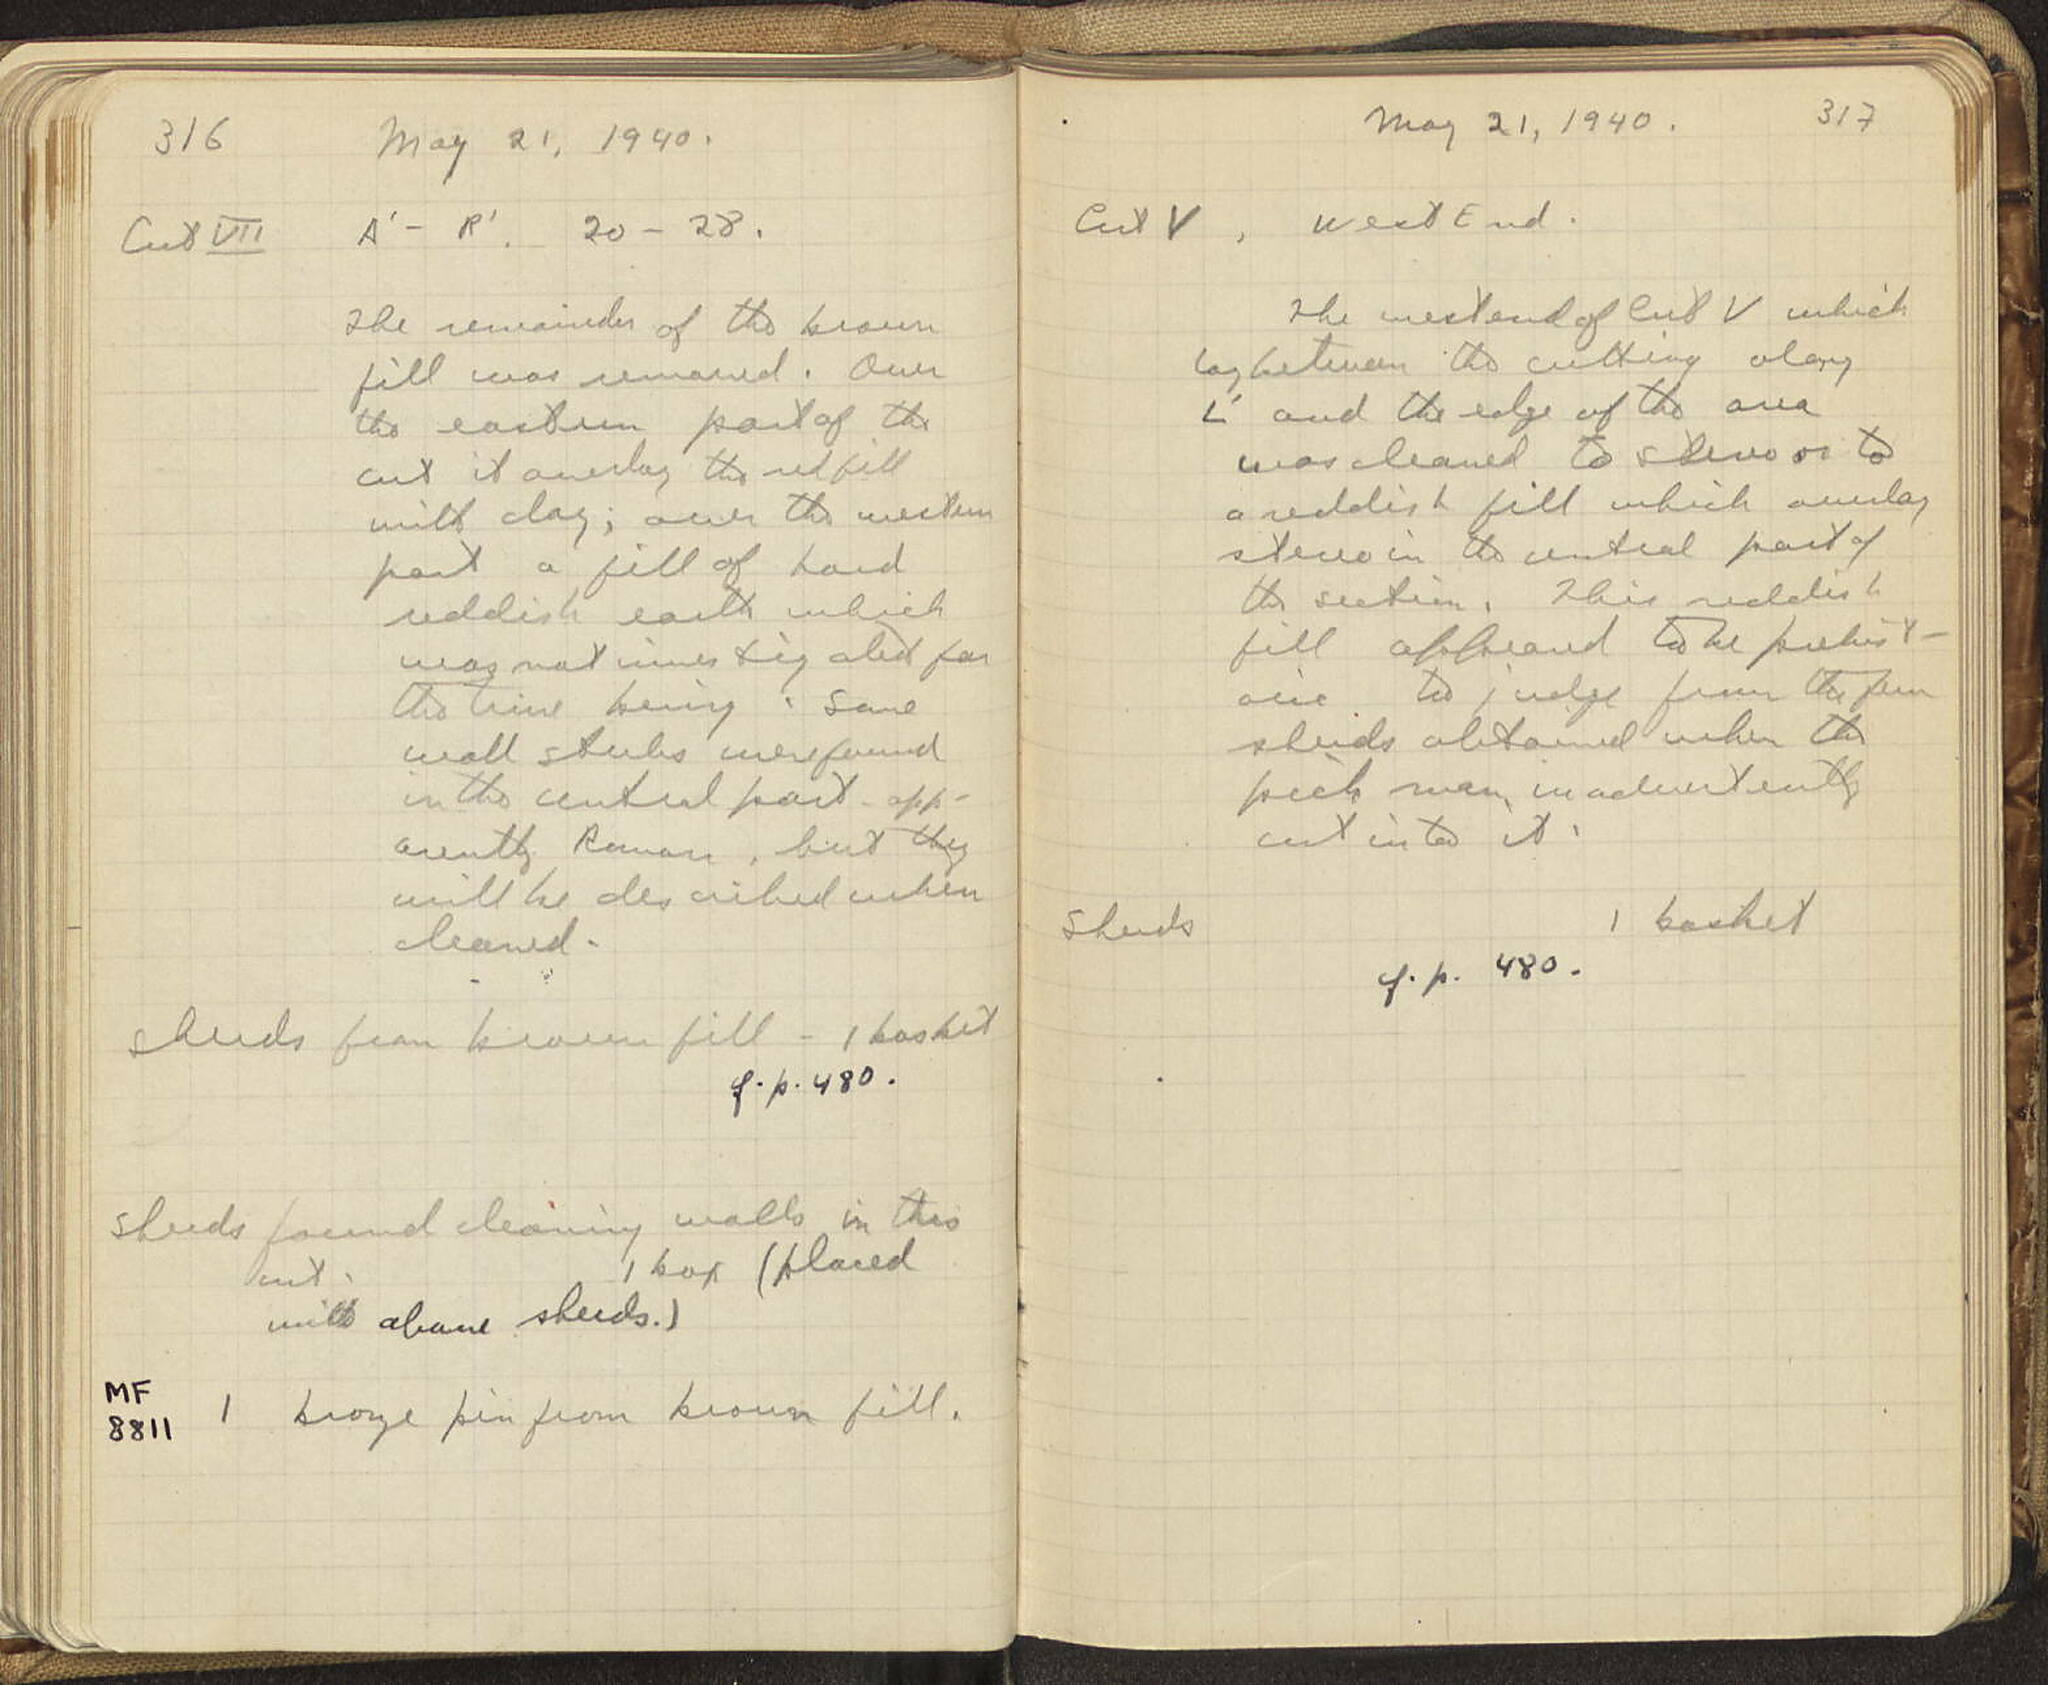 316 May 21, 1940.
Cut VII A' - R'. 20 - 28.
The remainder of the brown
fill was removed. Over
the eastern part of the
cut it overlay the red fill
with clay; over the western
part a fill of hard
reddish earth which
was not investigated for
the time being. Some
wall stubs were found
in the central part - app-
arently Roman, but they
will be described when
cleaned.
Sherds from brown fill - 1 basket
cf. p. 480.
Sherds found cleaning walls in this
cut. 1 box (placed
with above sherds.)
MF
8811 1 bronze pin from brown fill.
May 21, 1940. 317
Cut V, West End.
The west end of Cut V which
lay between the cutting along
L' and the edge of the area
was cleaned to stereo or to
a reddish fill which overlay
stereo in the central part of
the section. This reddish
fill appeared to be prehist-
oric to judge from the few
sherds obtained when the
pick man inadvertently
cut into it.
Sherds 1 basket
cf. p. 480.